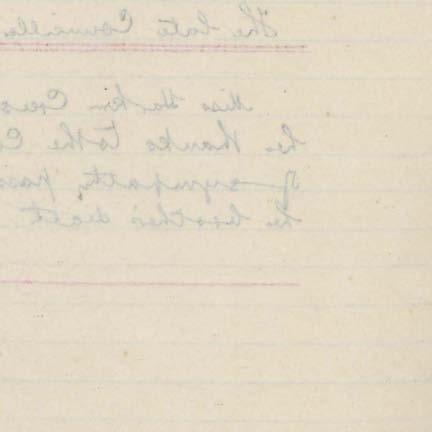 The late Councillo
Miss Harkin
her thanks to the C
of sympathy pass
her brother's death